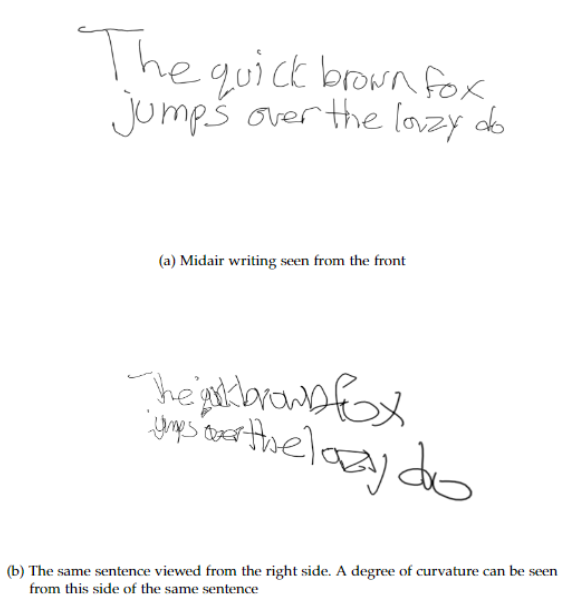 The quick brown fox
jumps over the lovzy do
(a) Midair writing seen from the front
The quick brown fox
jumps over the lazy do
(b) The same sentence viewed from the right side. A degree of curvature can be seen
from this side of the same sentence